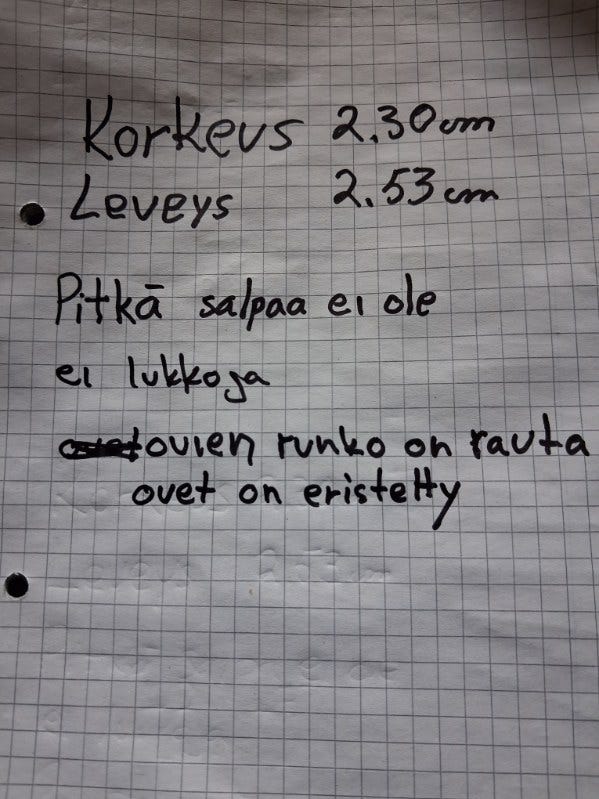 Korkeus 2.30cm
Leveys 2.53cm
Pitkä salpaa ei ole
ei lukkoja
ovien runko on rauta
ovet on eristetty